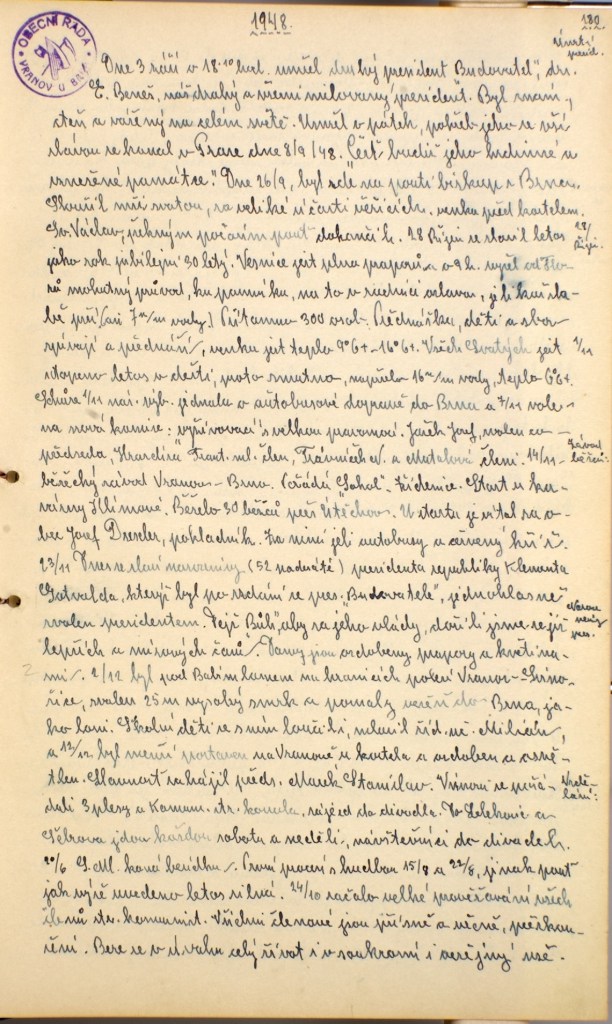 1948.
180
OBECNÍ RADA
VRANOV U BRNA
Úmrtí
presid.
Dne 3 září v 18.10 hod. umřel druhý president "Budovatel", dr.
E. Beneš, náš drahý a všemi milovaný president. Byl znám,
ctěn a vážený na celém světě. Umřel v pátek, pohřeb jeho se vší
slávou se konal v Praze dne 8/9/48. "Čest budiž jeho hrdinné a
vznešené památce." Dne 26/9, byl zde na pouti biskup z Brna.
Sloužil mši svatou, za veliké účasti věřících, venku před kostelem.
Sv. Václav, pěkným počasím pouť dokončil. 28 Října se slavil letos
28/
Října.
jako rok jubilejní 30 letý. Vesnice zas plna praporů a o 9 h. vyšel od
mohutný průvod, ku pomníku, na to v radnici oslava, je-li
při 7 m/m vody. Přítomno 300 osob. Přednáška, děti a sbor
zpívají a přednáší, venku jest teplo 9°C+ - 16°C+. Všech Svatých jest
1/11
letos v dešti, proto smutno, napršelo 16 m/m vody, teplo 6°C+.
Schůze 1/11 nár. výb. jednala o autobusové dopravě do Brna a 7/11 vole-
na nová komise: vyživovací s velkou pravomocí. Josef, zvolen za
předseda, Frant. ml. člen, Trávníček N. a Matalová členi. 14/11
závod
běžců:
běžecký závod Vranov - Brna. Pořádá "Sokol" Židenice. Start u ka-
várny Klímové. Běželo 30 běžců přes Útěchov. U startu je vítal za o-
bec Josef Drexler, pokladník. Za nimi jeli autobusy a červený kříž.
23/11 Dnes se slaví narozeniny (52 padesáté) presidenta republiky Klementa
Gotwalda, kterýž byl po vzdání se pres. "Budovatele", jednohlasně
Narozeniny
pres.
zvolen presidentem. "Dejž Bůh", aby za jeho vlády, dožili jsme se již
lepších a mírových časů. Domy jsou ozdobeny prapory a květina-
mi. 2/12 byl pod Babím lomem na hranicích polesí Vranov - Lelekovice,
svalen 25 m vysoký smrk a pomalý vezen do Brna, ja-
ko loni. Školní děti se s ním loučili, mluvil říd. uč. Milián,
a 12/12 byl menší postaven na Vranově u kostela a ozdoben a osvě-
tlen. Slavnost zahájil předs. Marek Stanislav. V únoru se pořá-
Vzdě-
lání:
dali 3 plesy a Komun. str. konala, zájezd do divadla. Do Lelekovic a
jdou každou sobotu a neděli, návštěvníci do divadel.
20/6 S.M. koná besídku. První pouť s hudbou 15/8 a 22/8, jinak pouť
jak výše uvedeno letos silná. 24/10 začalo velké prověřování všech
členů str. komunist. Všichni členové jsou přísně a věčně, přezkou-
šeni. Bere se v úvahu celý život i v soukromí i veřejný vše.